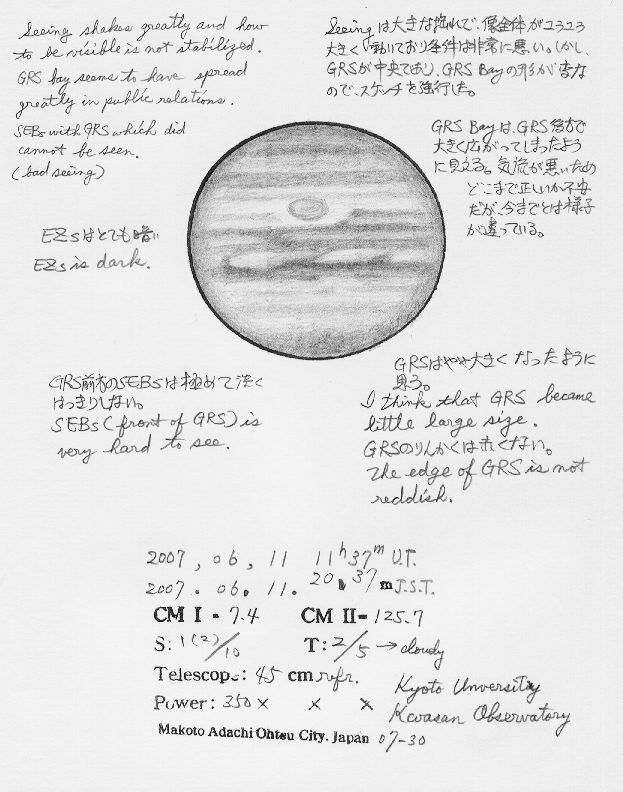 Seeing shakes greatly and how
to be visible is not stabilized.
GRS bay seems to have spread
greatly in public relations.
SEBs with GRS which did
cannot be seen.
(bad seeing)
Seeingは大きな揺れで、像全体がユラユラ
大きく動いており条件は非常に悪い。しかし、
GRSが中央であり、GRS Bayの形が変な
ので、スケッチを強行した。
GRS Bayは、GRS後方で
大きく広がってしまったよう
に見える。気流が悪いため
どこまで正しいか不安
だが、今までとは様子
が違っている。
EZsはとても暗い
EZs is dark.
GRS前方のSEBsは極めて淡く
はっきりしない。
SEBs (front of GRS) is
very hard to see.
GRSはやや大きくなったように
思う。
I think that GRS became
little large size.
GRSのりんかくは赤くない。
The edge of GRS is not
reddish.
2007, 06, 11 11h37m U.T.
2007. 06. 11. 20. 37m J.S.T.
CM I - 7.4 CM II- 125.7
S: 1(2)/10 T: 2/5 → cloudy
Telescop.: 45 cm refr.
Power: 350 × × ×
Kyoto Unversity
Kwasan Observatory
Makoto Adachi Ohtsu City. Japan 07-30